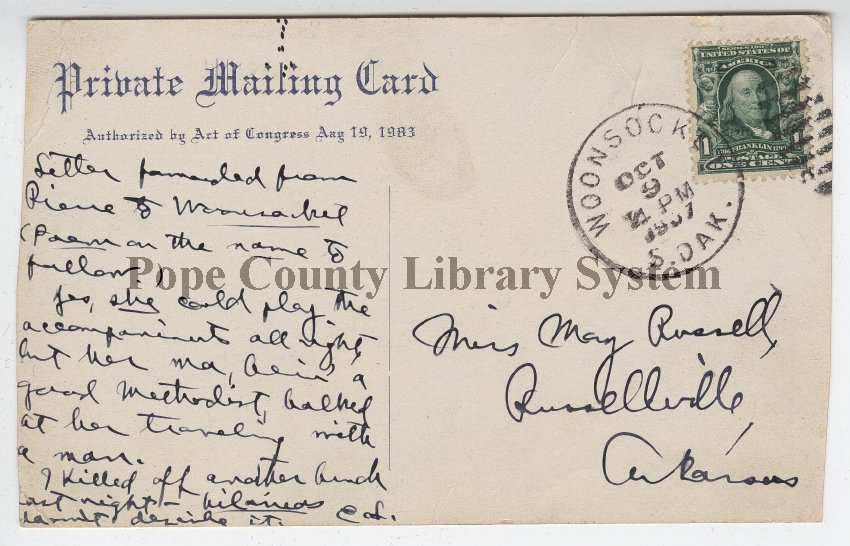 Private Mailing Card
Authorized by Act of Congress Aay 19, 1983
SERIES 1902
UNITED STATES OF
AMERICA
FRANKLIN
POSTAGE
1 1
ONE CENT
WOONSOCKET
OCT
9
PM
1907
S. DAK.
Letter forwarded from
Pierre to Woonsocket
(Poem on the name to
follow.)
Yes, she could play the
accompaniments all right,
but her ma, bein' a
good Methodist, balked
at her traveling with
a man.
I killed off another bunch
last night – hilarious
describe it. Ed.
Pope County Library System
Miss May Russell,
Russellville,
Arkansas